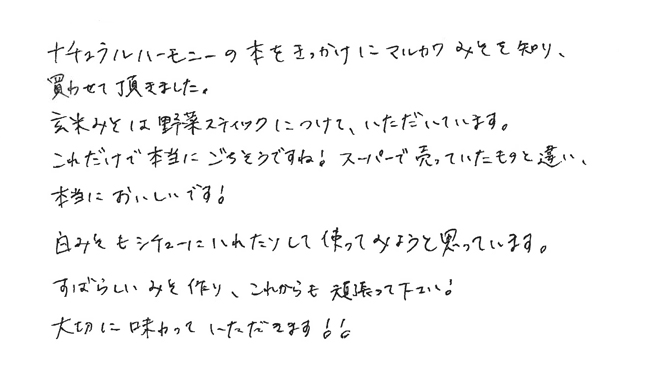 ナチュラルハーモニーの本をきっかけにマルカワみそを知り、
買わせて頂きました。
玄米みそは野菜スティックにつけて、いただいています。
これだけで本当にごちそうですね！スーパーで売っていたものと違い、
本当においしいです！
白みそもシチューにいれたりして使ってみようと思っています。
すばらしいみそ作り、これからも頑張って下さい！
大切に味わっていただきます！！